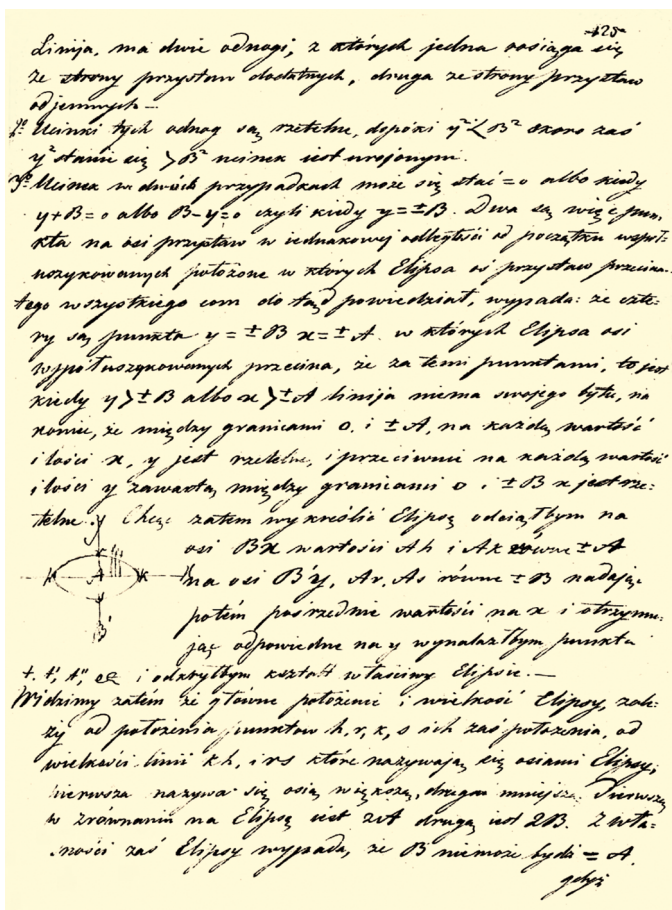 125
Linija, ma dwie odnogi, z których jedna rosciąga się
ze strony przystaw dodatnych, druga ze strony przystaw
odjemnych —
2º Ucinki tych odnog są rzetelne, dopóki y² < B² skoro zaś
y² stanie się > B² ucinek iest urojonym.
3º Ucinek w dwóch przypadkach może się stać = 0 albo kiedy
y + B = 0 albo B - y = 0 czyli kiedy y = ± B. Dwa są więc pun,
kta na osi przystaw w iednakowej odległości od początku wspól:
uszykowanych położone w których Elipsa oś przystaw przecina.
Z tego wszystkiego com do tąd powiedział, wypada: że czte:
ry są punkta y = ± B x = ± A. w których Elipsa osi
wspołuszykowanych przecina, że za temi punktami, to jest
kiedy y > ± B albo x > ± A linija niema swojego bytu, na
koniec, że między granicami 0. i ± A, na każdą wartość
ilości x, y jest rzetelne, i przeciwnie na każdą wartość
ilości y zawartą między granicami 0 i ± B x jest rze:
telne. Chcąc zatem wykreślić Elipsę odciąłbym na
osi Bx wartości Ah i Ak równe ± A
na osi B'y, Ar, As równe ± B nadając
potem pośrednie wartości na x i otrzymu:
jąc odpowiedne na y wynalazłbym punkta
t. t', t'', etc i odkryłbym kształt właściwy Elipsie. —
Widzimy zatem że główne położenie i wielkość Elipsy, zale:
ży od położenia punktow h, r, k, s ich zaś położenia, od
wielkości linii kh, i rs które nazywają się osiami Elipsy;
pierwsza nazywa się osią większą, druga mniejszą. Pierwszą
w zrównaniu na Elipsę iest 2A drugą iest 2B. Z wła:
sności zaś Elipsy wypada, że B niemoże bydź = A.
gdyż